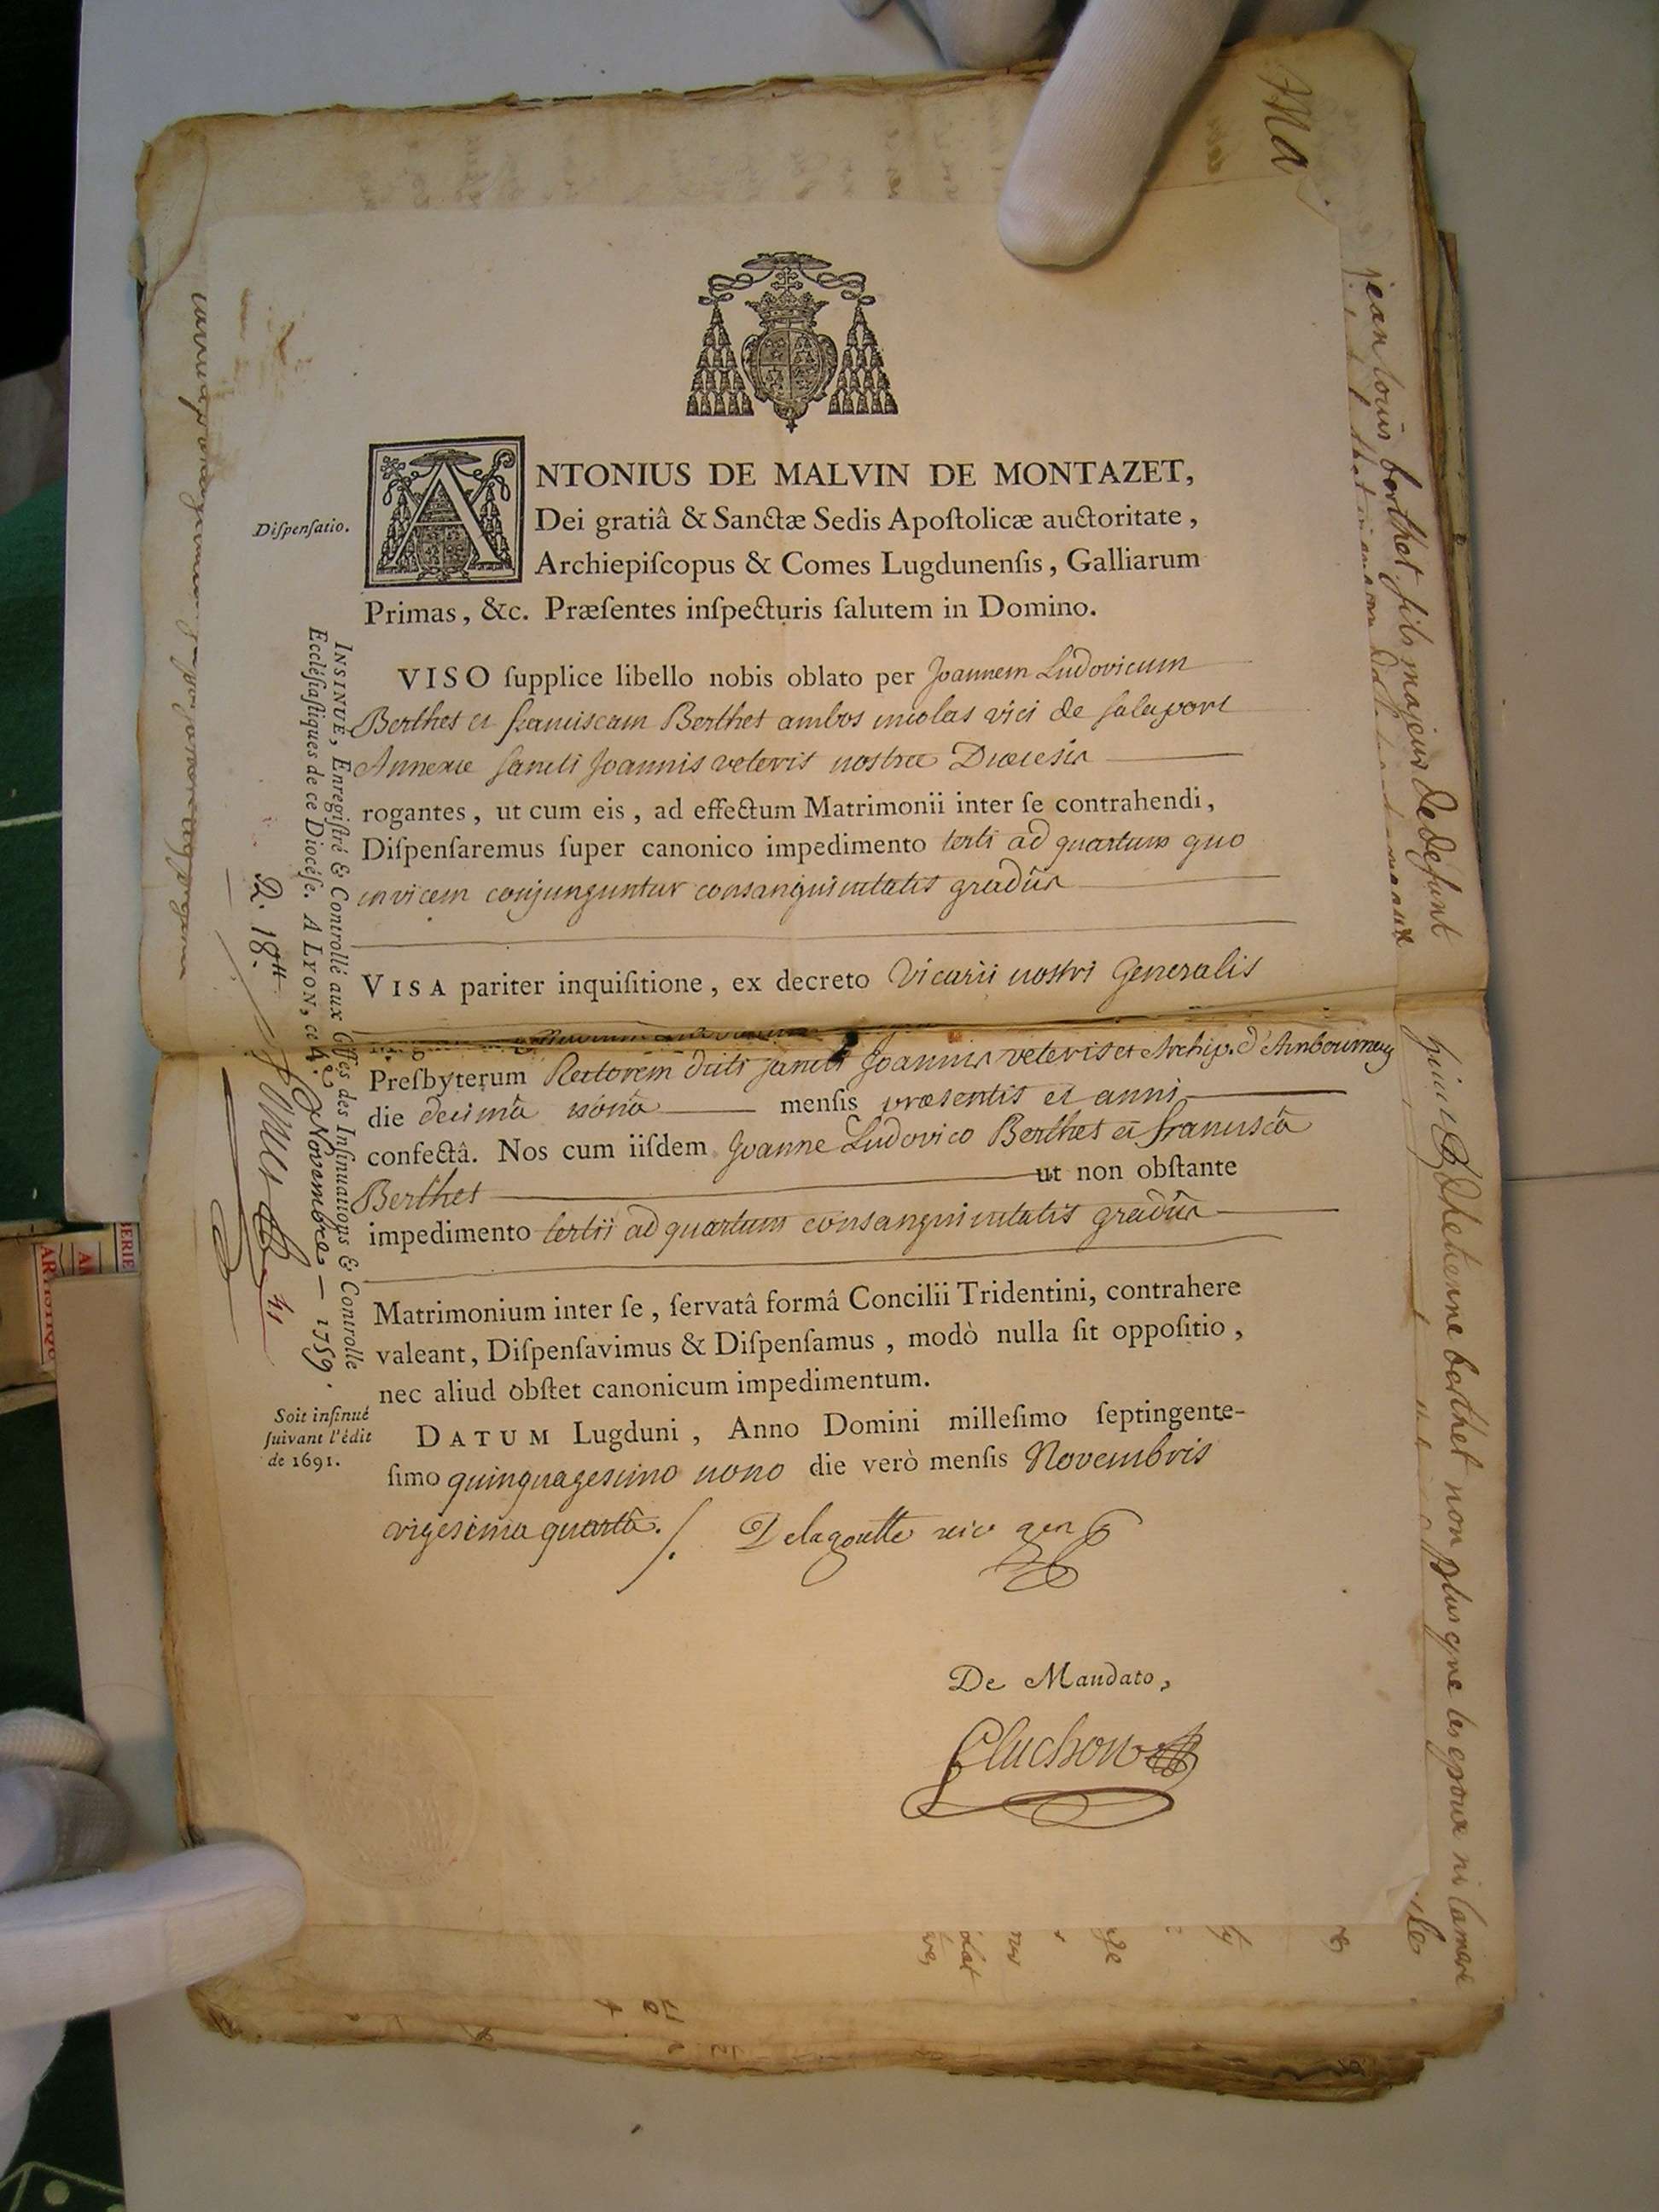 Ma
Diſpenſatio.
ANTONIUS DE MALVIN DE MONTAZET,
Dei gratiâ & Sanctæ Sedis Apoſtolicæ auctoritate,
Archiepiſcopus & Comes Lugdunenſis, Galliarum
Primas, &c. Præſentes inſpecturis ſalutem in Domino.
VISO ſupplice libello nobis oblato per Joannem Ludovicum
Berthet et franciscam Berthet ambos incolas vici de
Annexæ sancti Joannis veteris nostræ Diœcesis
rogantes, ut cum eis, ad effectum Matrimonii inter ſe contrahendi,
Diſpenſaremus ſuper canonico impedimento tertii ad quartum quo
invicem conjunguntur consanguinitatis gradûs
VISA pariter inquiſitione, ex decreto Vicarii nostri Generalis
Preſbyterum Rectorem dicti sancti Joannis veteris et Archip. d'Ambournay
die decimâ nonâ menſis præsentis et anni
confectâ. Nos cum iiſdem Joanne Ludovico Berthet et franciscâ
Berthet ut non obſtante
impedimento tertii ad quartum consanguinitatis gradûs
Matrimonium inter ſe, ſervatâ formâ Concilii Tridentini, contrahere
valeant, Diſpenſavimus & Diſpenſamus, modò nulla ſit oppoſitio,
nec aliud obſtet canonicum impedimentum.
DATUM Lugduni, Anno Domini milleſimo ſeptingente-
ſimo quinquagesimo nono die verò menſis Novembris
vigesima quartâ. Delagoutte vic gen
De Mandato,
Cluchon
Soit inſinué
ſuivant l'édit
de 1691.
INSINUÉ, Enregiſtré & Controllé aux Gffes des Inſinuations & Controlle
Eccléſiaſtiques de ce Diocéſe. A LYON, ce Novembre 1759.
R. 18tt
jean louis berthet fils majeur de defunt
berthet non plus que les epoux ni la mere